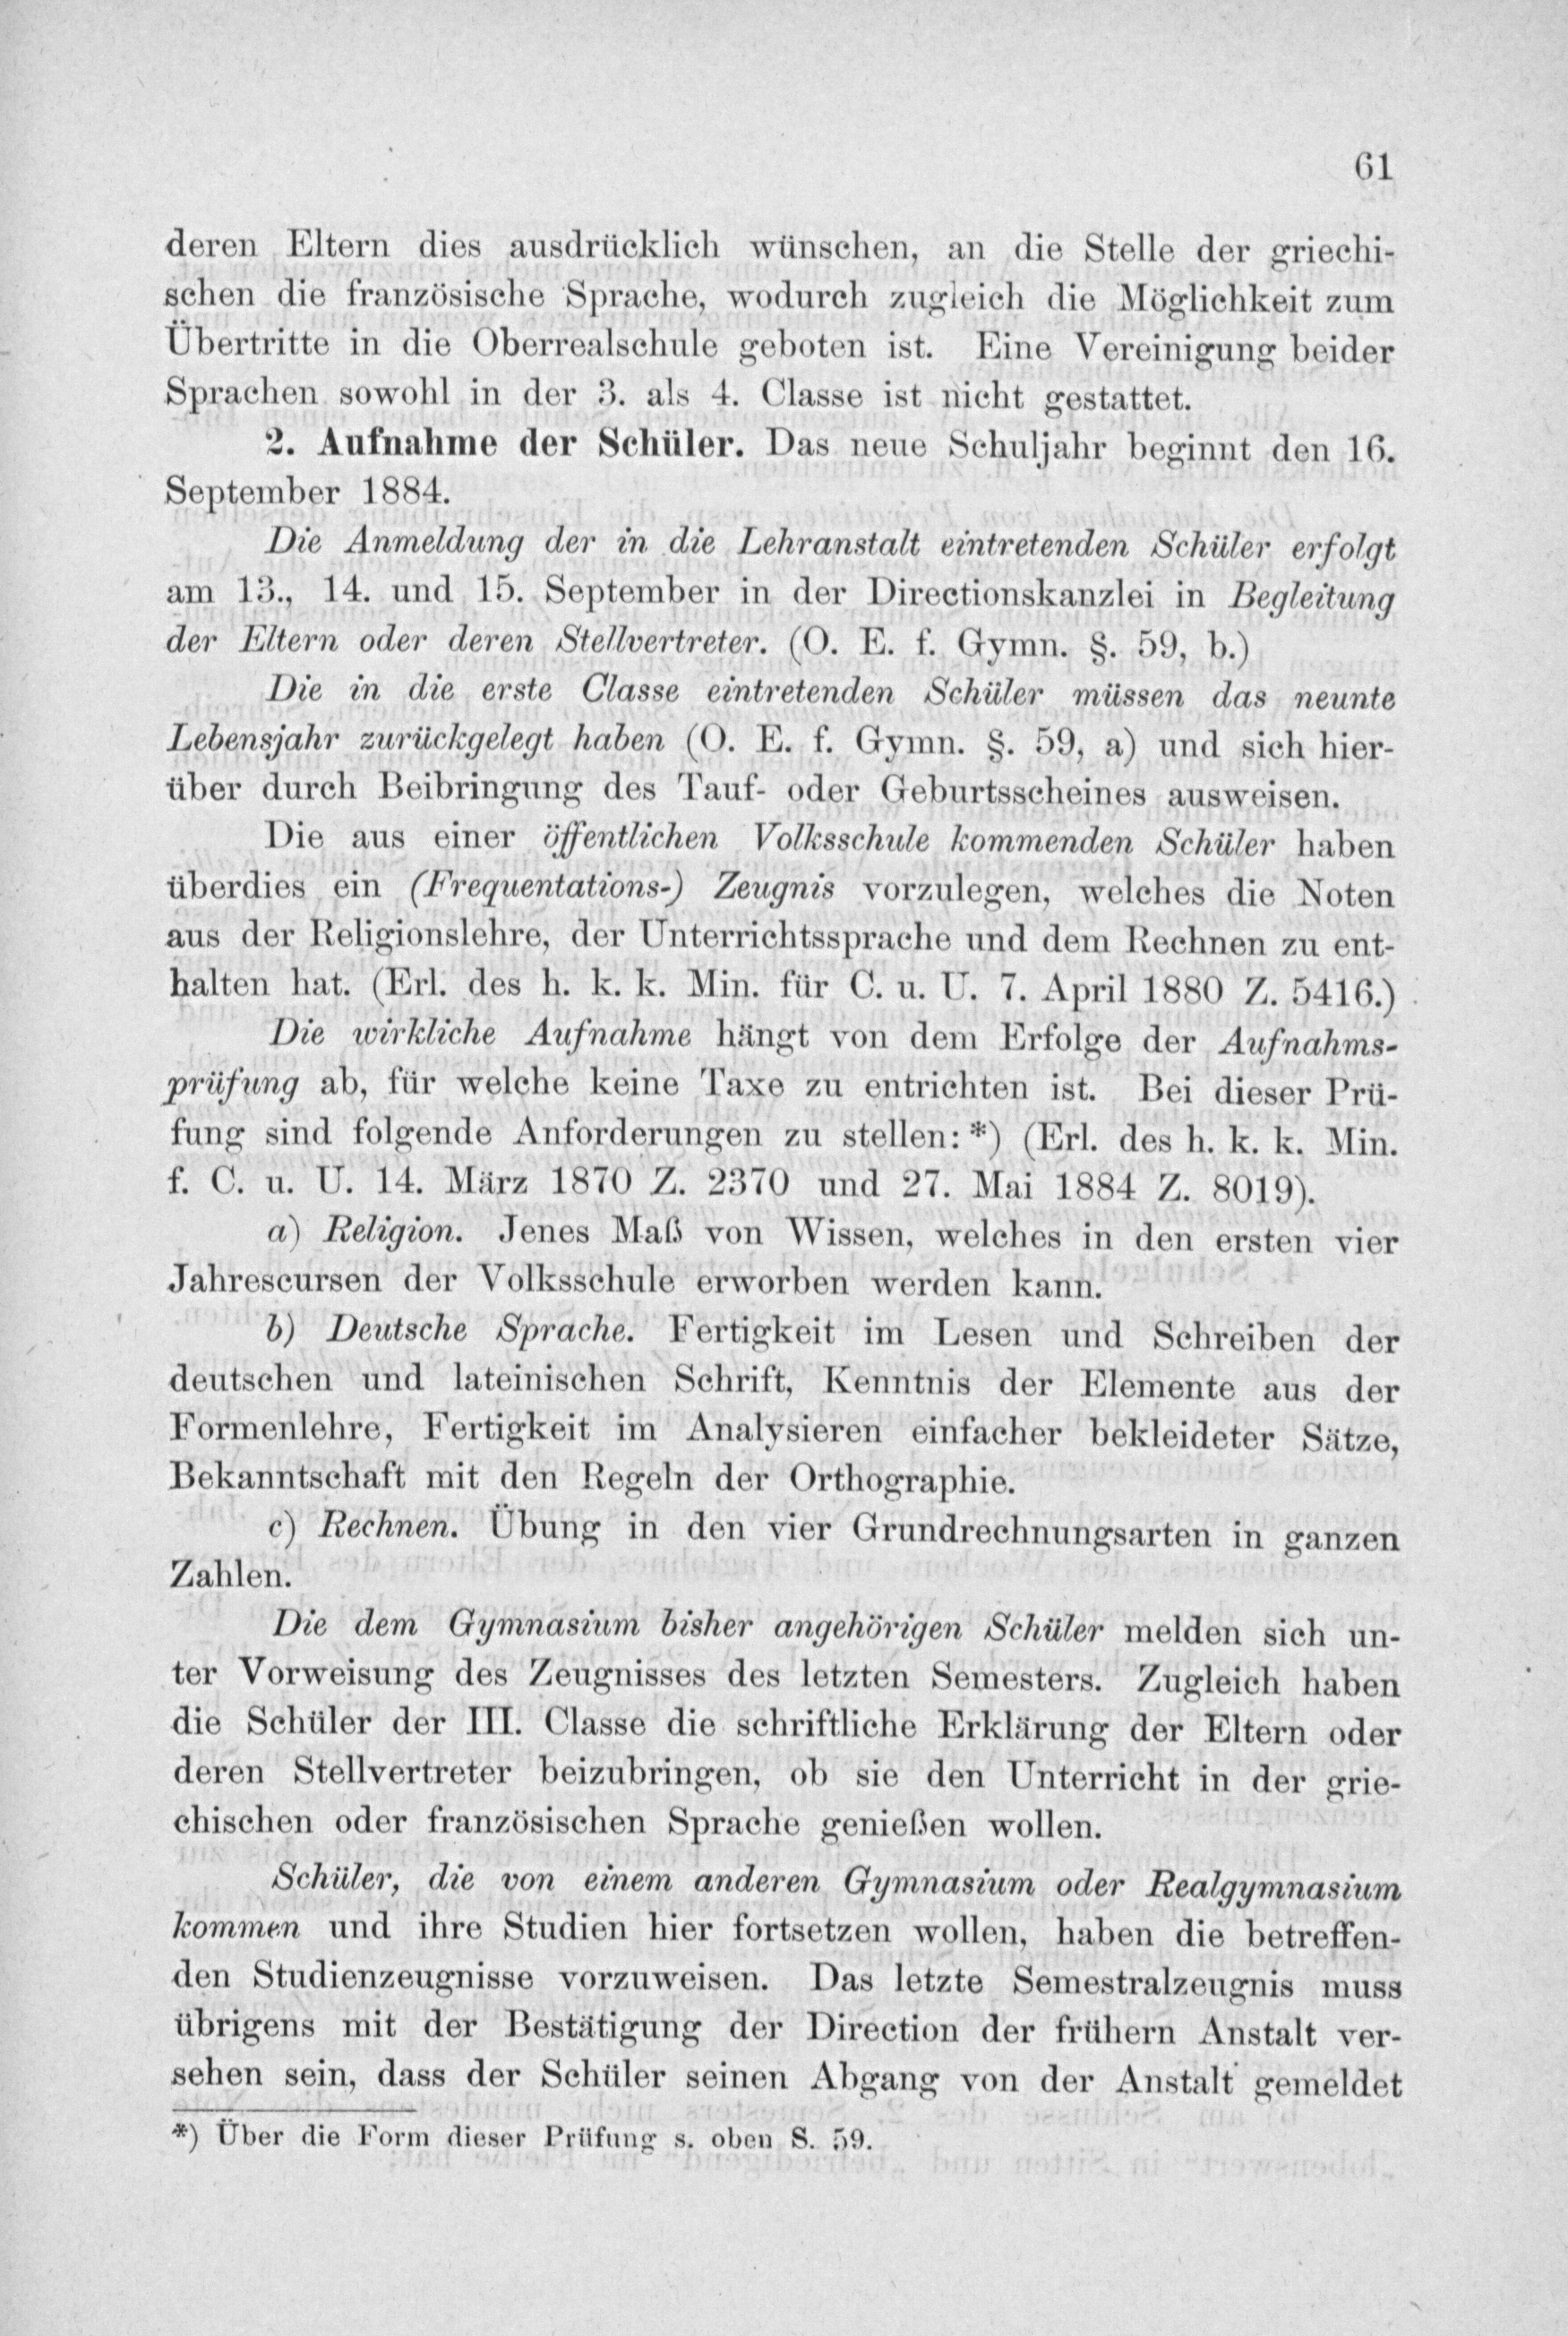 61
deren Eltern dies ausdrücklich wünschen, an die Stelle der griechi-
schen die französische Sprache, wodurch zugleich die Möglichkeit zum
Übertritte in die Oberrealschule geboten ist. Eine Vereinigung beider
Sprachen sowohl in der 3. als 4. Classe ist nicht gestattet.
2. Aufnahme der Schüler. Das neue Schuljahr beginnt den 16.
September 1884.
Die Anmeldung der in die Lehranstalt eintretenden Schüler erfolgt
am 13., 14. und 15. September in der Directionskanzlei in Begleitung
der Eltern oder deren Stellvertreter. (O. E. f. Gymn. §. 59, b.)
Die in die erste Classe eintretenden Schüler müssen das neunte
Lebensjahr zurückgelegt haben (O. E. f. Gymn. §. 59, a) und sich hier-
über durch Beibringung des Tauf- oder Geburtsscheines ausweisen.
Die aus einer öffentlichen Volksschule kommenden Schüler haben
überdies ein (Frequentations-) Zeugnis vorzulegen, welches die Noten
aus der Religionslehre, der Unterrichtssprache und dem Rechnen zu ent-
halten hat. (Erl. des h. k. k. Min. für C. u. U. 7. April 1880 Z. 5416.)
Die wirkliche Aufnahme hängt von dem Erfolge der Aufnahms-
prüfung ab, für welche keine Taxe zu entrichten ist. Bei dieser Prü-
fung sind folgende Anforderungen zu stellen: *) (Erl. des h. k. k. Min.
f. C. u. U. 14. März 1870 Z. 2370 und 27. Mai 1884 Z. 8019).
a) Religion. Jenes Maß von Wissen, welches in den ersten vier
Jahrescursen der Volksschule erworben werden kann.
b) Deutsche Sprache. Fertigkeit im Lesen und Schreiben der
deutschen und lateinischen Schrift, Kenntnis der Elemente aus der
Formenlehre, Fertigkeit im Analysieren einfacher bekleideter Sätze,
Bekanntschaft mit den Regeln der Orthographie.
c) Rechnen. Übung in den vier Grundrechnungsarten in ganzen
Zahlen.
Die dem Gymnasium bisher angehörigen Schüler melden sich un-
ter Vorweisung des Zeugnisses des letzten Semesters. Zugleich haben
die Schüler der III. Classe die schriftliche Erklärung der Eltern oder
deren Stellvertreter beizubringen, ob sie den Unterricht in der grie-
chischen oder französischen Sprache genießen wollen.
Schüler, die von einem anderen Gymnasium oder Realgymnasium
kommen und ihre Studien hier fortsetzen wollen, haben die betreffen-
den Studienzeugnisse vorzuweisen. Das letzte Semestralzeugnis muss
übrigens mit der Bestätigung der Direction der frühern Anstalt ver-
sehen sein, dass der Schüler seinen Abgang von der Anstalt gemeldet
*) Über die Form dieser Prüfung s. oben S. 59.